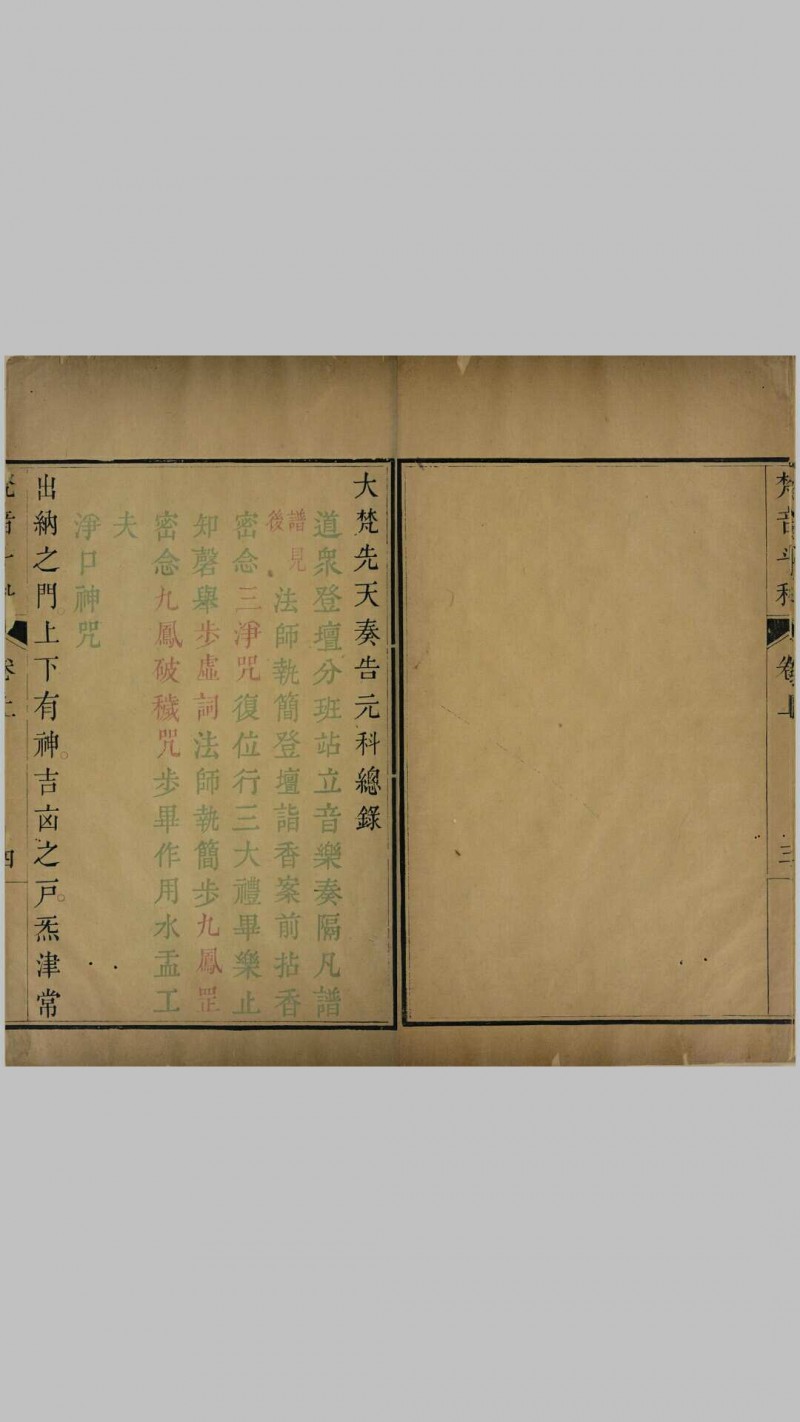 梵音斗科 卷上 三
大梵先天奏告元科總錄
道衆登壇分班站立音樂奏隔凡譜
譜見後法師執簡登壇詣香案前拈香
密念三淨咒復位行三大禮畢樂止
知磬舉步虛詞法師執簡步九鳳罡
密念九鳳破穢咒步畢作用水盂工
夫
淨口神咒
出納之門上下有神吉凶之戸炁津常
卷上 四